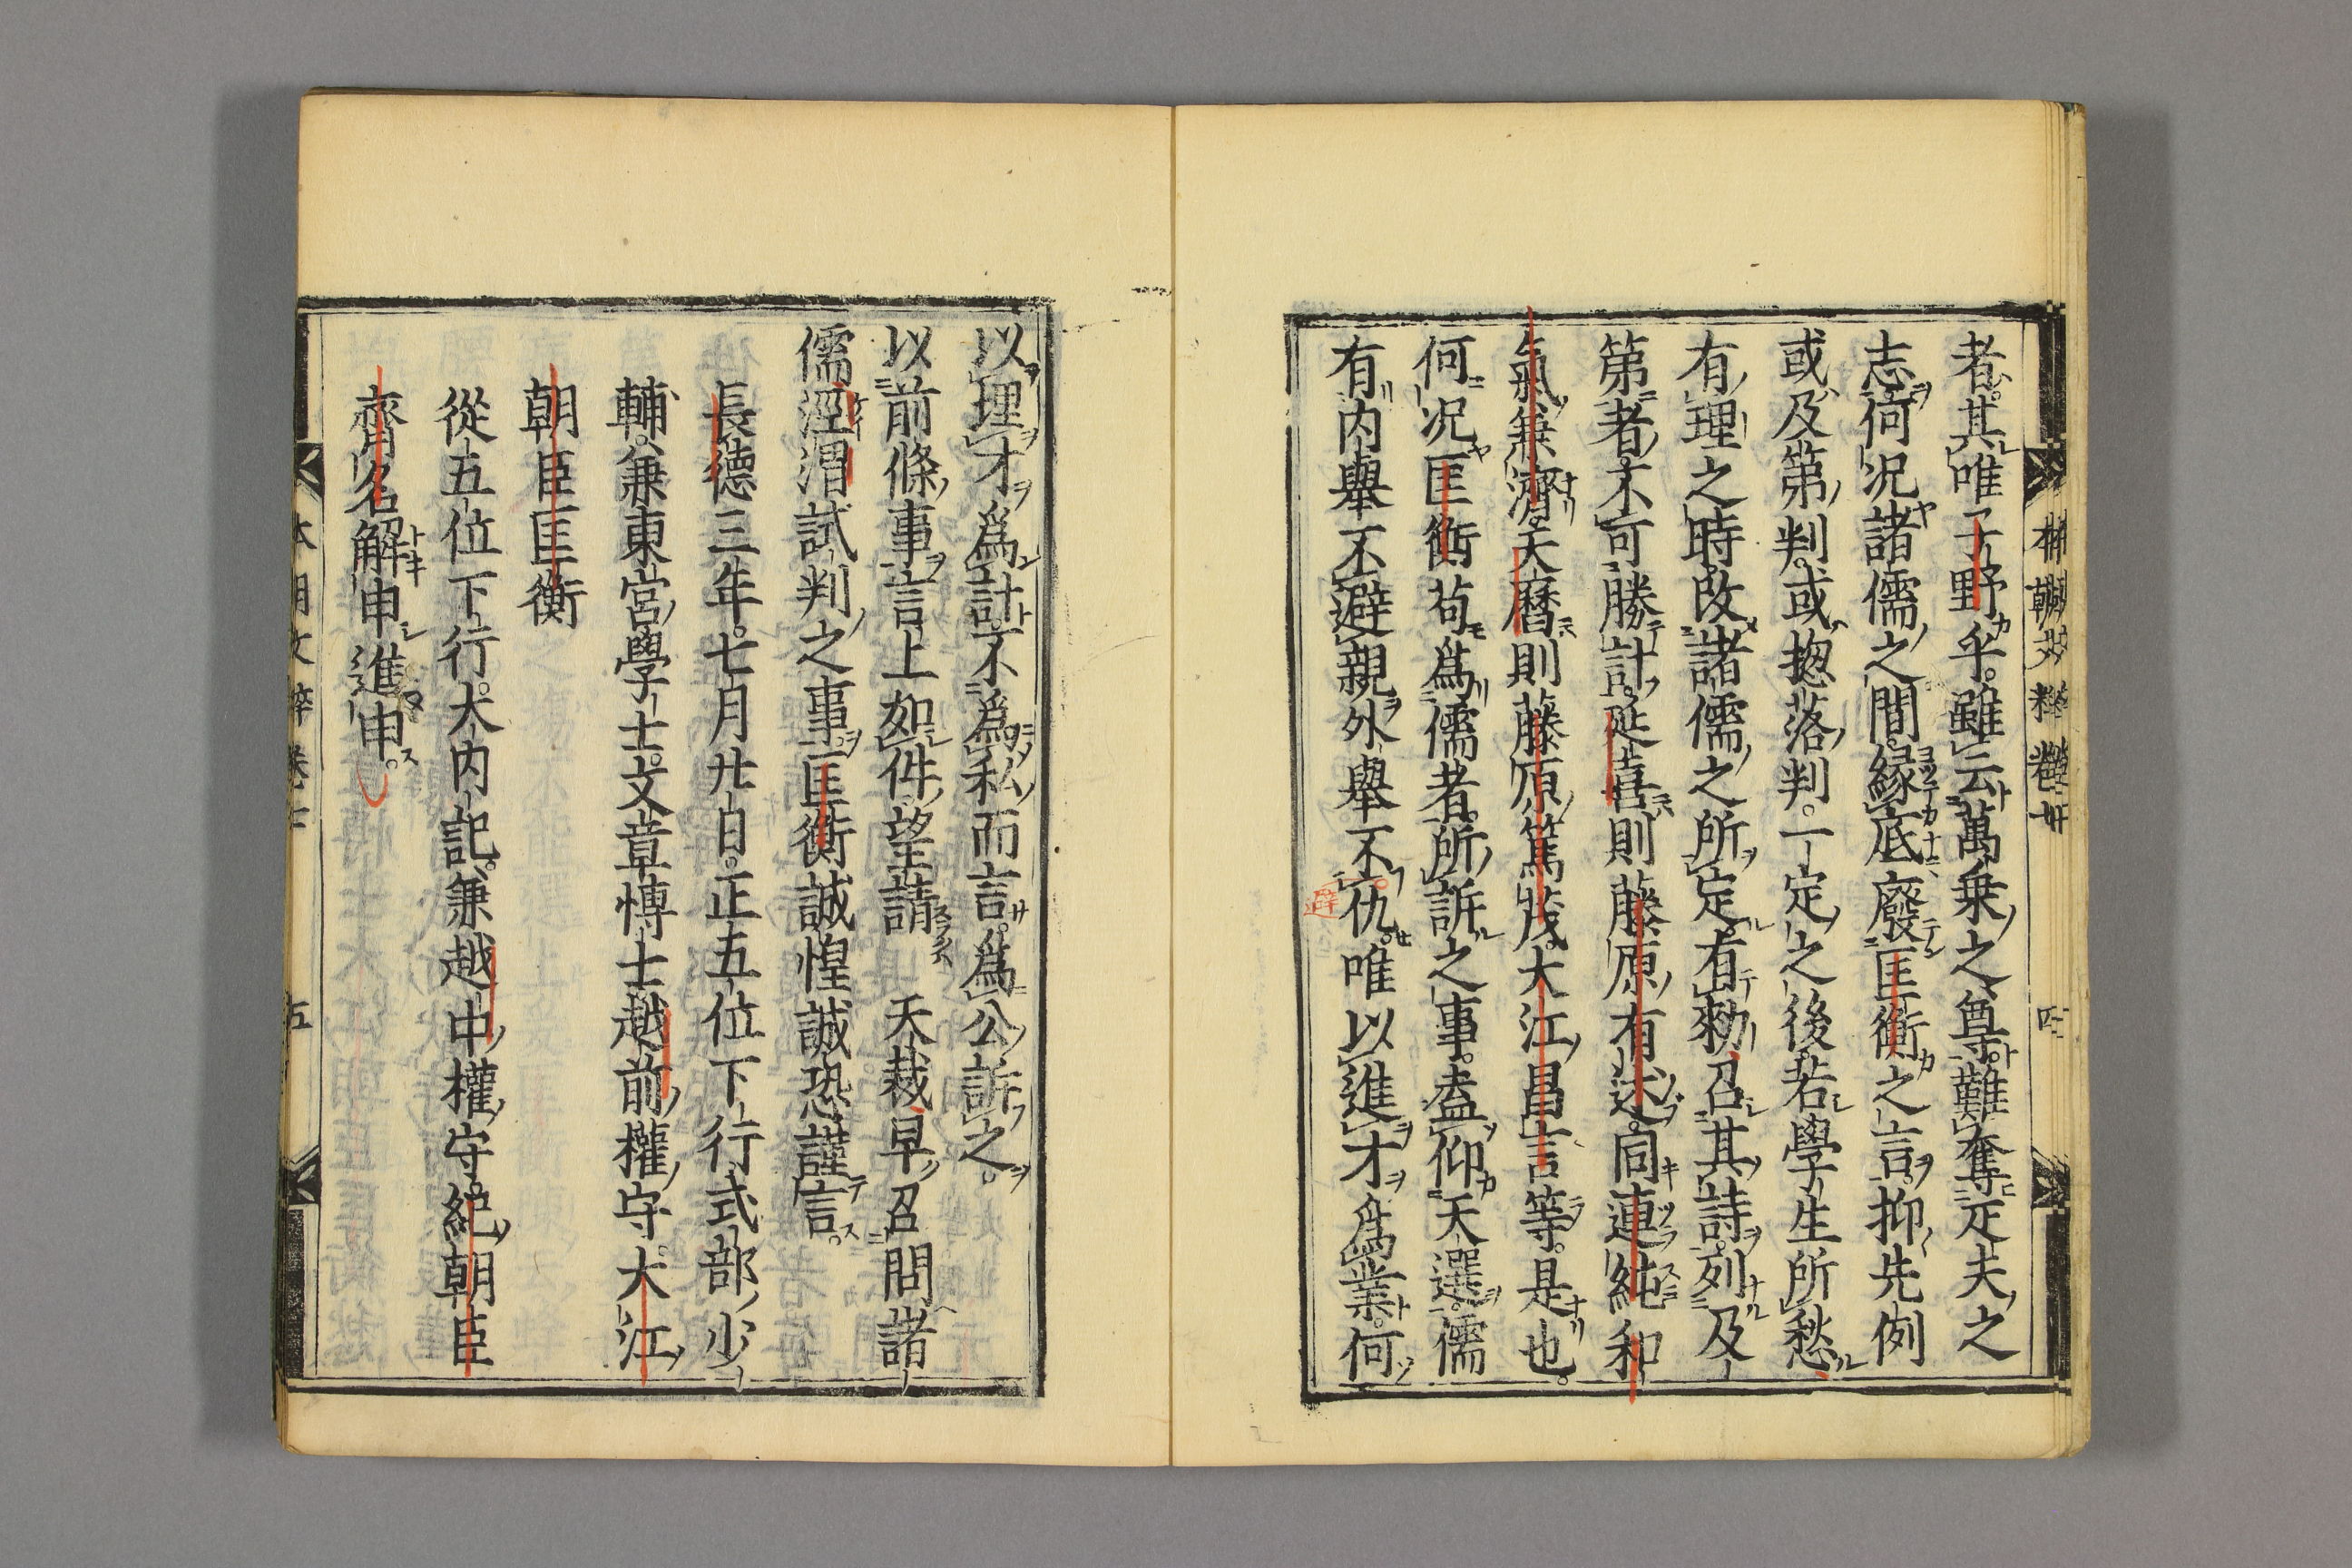 者其唯子野乎雖云萬乗之尊難奪疋夫之
志何况諸儒之間縁底廢匡衡之言抑先例
或及第判或揔落判一定之後若學生所愁
有理之時改諸儒之所定有勑召其詩列及
第者不可勝計延喜則藤原有述同連純和
氣兼濟天曆則藤原篤茂大江昌言等是也
何况匡衡苟爲儒者所訴之事盍仰天選儒
有内舉不避親外舉不仇唯以進才爲業何
避
以理才爲計不爲私而言爲公訴之
以前條事言上如件望請 天裁早召問諸
儒涇渭試判之事匡衡誠惶誠恐謹言
長德三年七月廿日正五位下行式部少
輔兼東宮學士文章博士越前權守大江
朝臣匡衡
從五位下行大内記兼越中權守紀朝臣
齊名解申進申
本朝文粹卷七
五